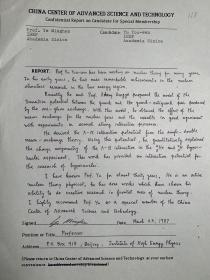 CHINA CENTER OF ADVANCED SCIENCE AND TECHNOLOGY
Confidential Report on Candidate for Special Membership
Prof. Yu Minghan
IHEP
Academia Sinica
Candidate: Yu You-wen
IHEP
Academia Sinica
REPORT: Prof. Yu You-wen has been working on nuclear theory for many years.
In his early years, he has made remarkable achievements in the nuclear
structure research in the low energy region.
Recently he and Prof. Zhang proposed the model of the
transition potential between the ground and the quark-antiquark pair produced
by the one gluon exchange. With this model, he obtained the effect of the
meson exchange for the nuclear force and the results in good agreement
with experiments in strong interaction processes.
He derived the Λ-N interaction potential from the single double
meson-exchange theory. Using this potential, he quantitatively explained
the charge asymmetry of the Λ-N interaction in the and hyper-
nuclei experiment. This work has provided an interaction potential for
the research of hypernuclei.
I have known Prof. Yu for almost thirty years. He is an active
nuclear theory physicist, he has done works which have shown his
ability to do creative research in frontier area of nuclear theory.
I highly recommend Prof. Yu as a special member of the China
Center of Advanced Science and Technology.
Signed: Date: March 23, 1987
Position or Title: Professor
Address: P.O. Box 918, Beijing, Institute of High Energy Physics
(Please return to China Center of Advanced Science and Technology at your earliest